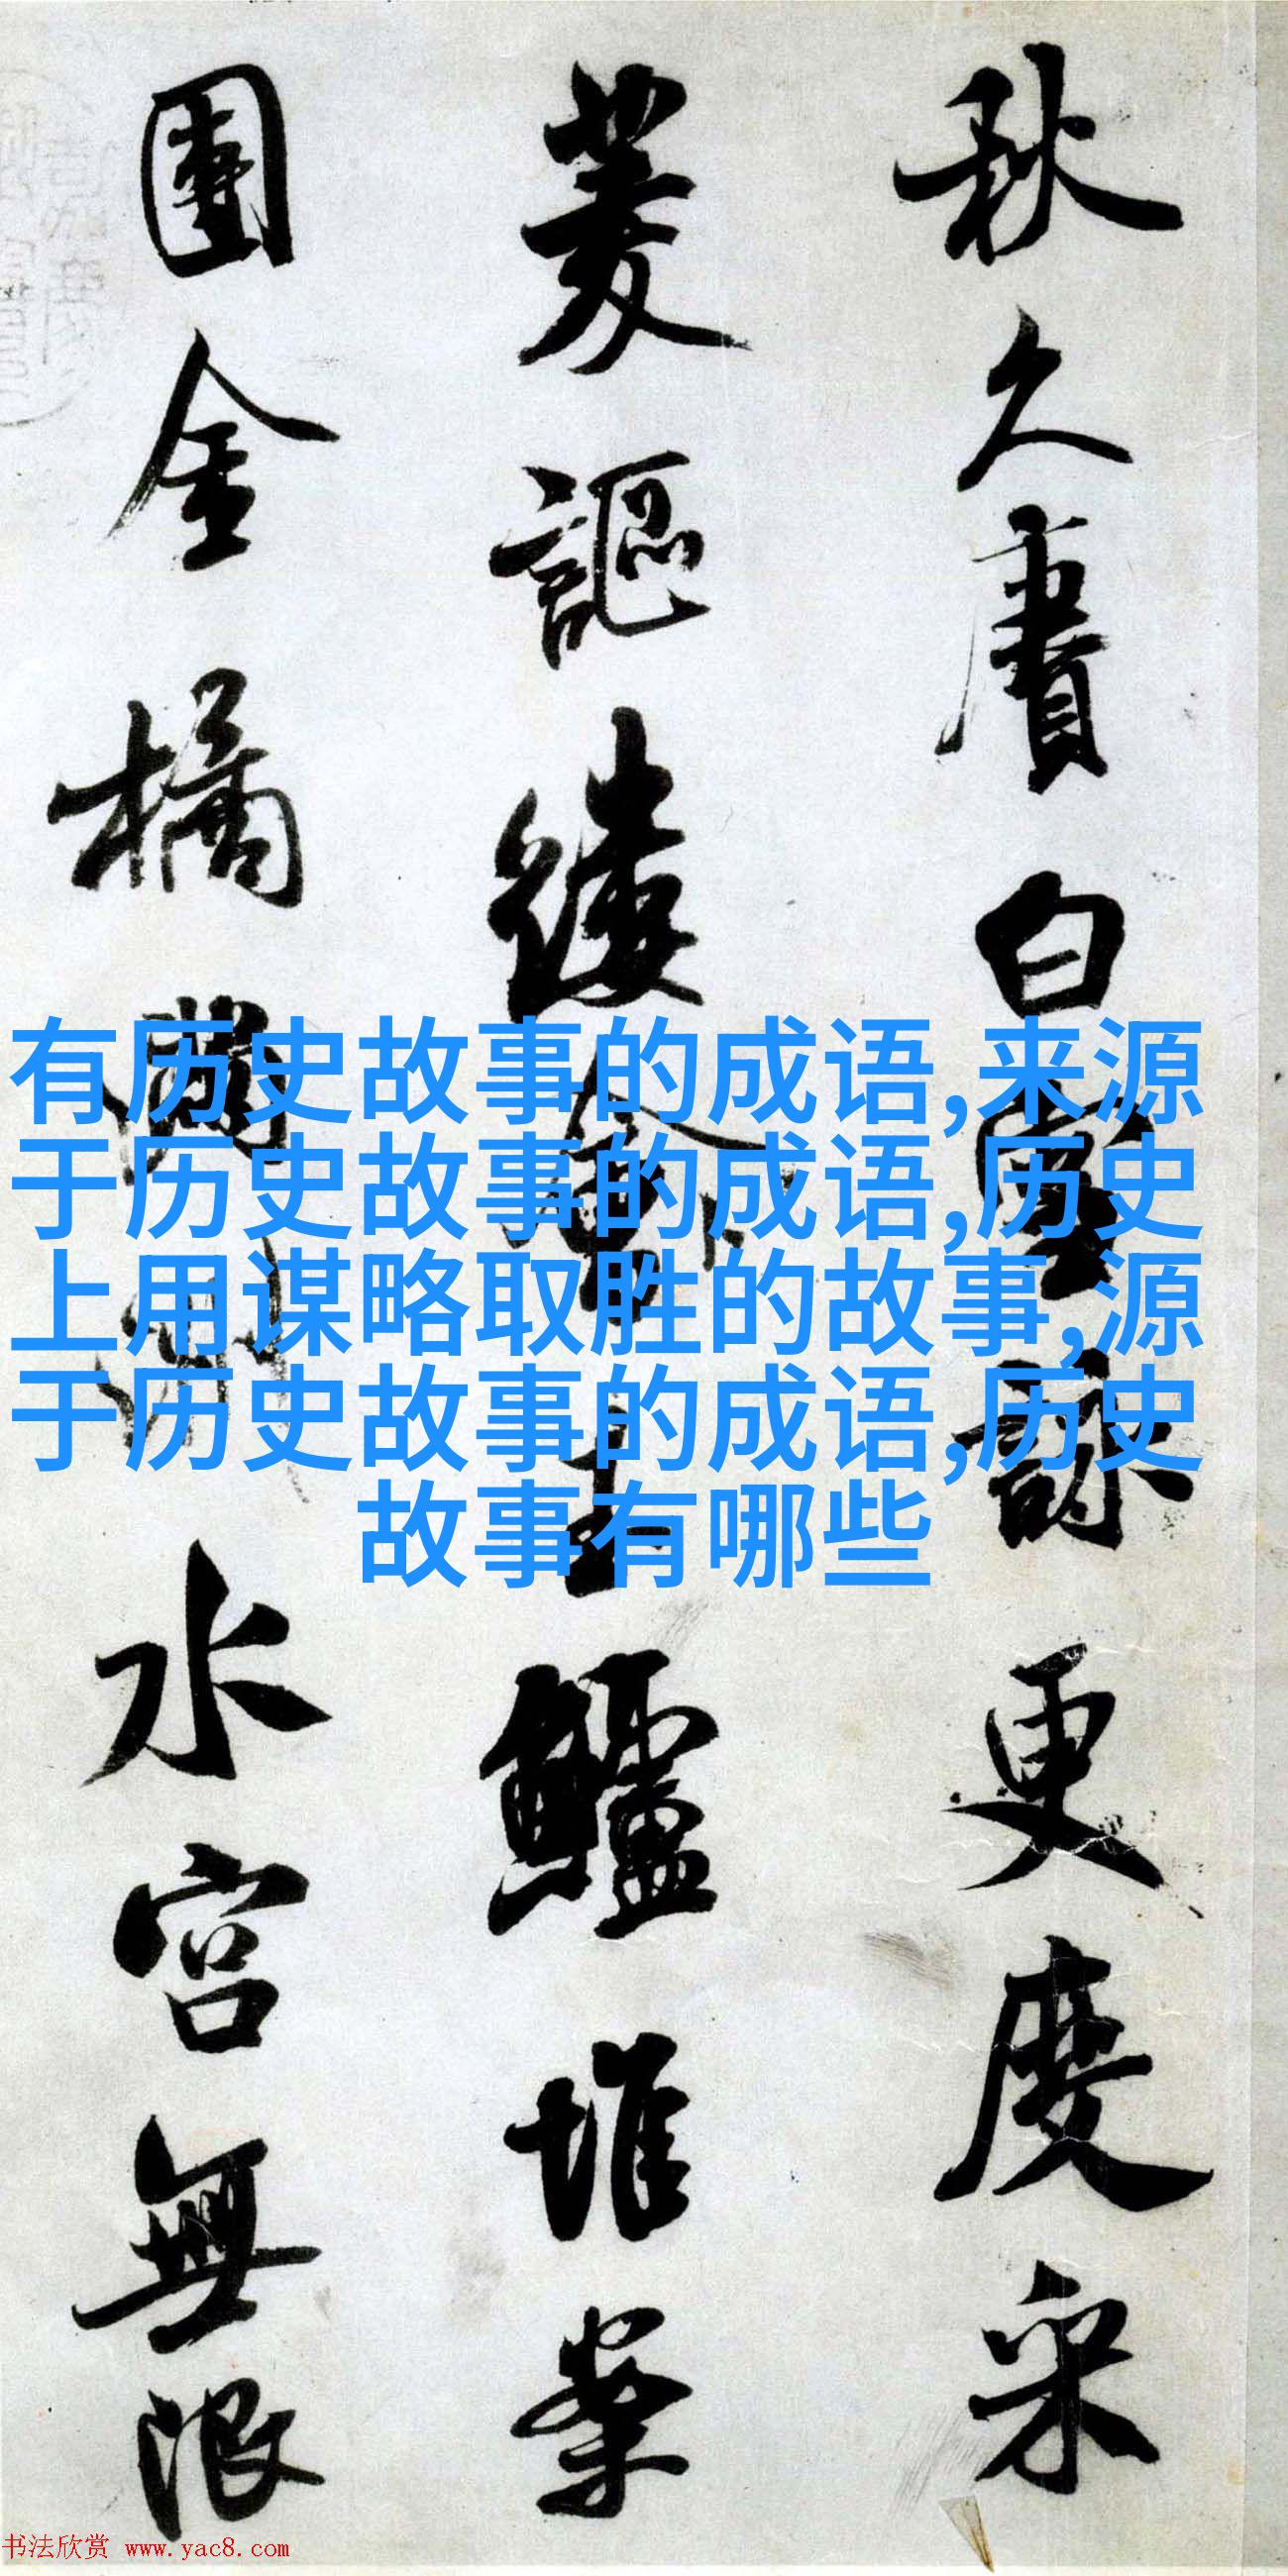 秋久賡白雪詠更度采
菱謳縷會玉鱸堆案
團金橘滿洲水宮無限
有历史故事的成语,来源
于历史故事的成语,历史
上用谋略取胜的故事,源
于历史故事的成语,历史
故事有哪些
书法欣赏 www.yac8.com